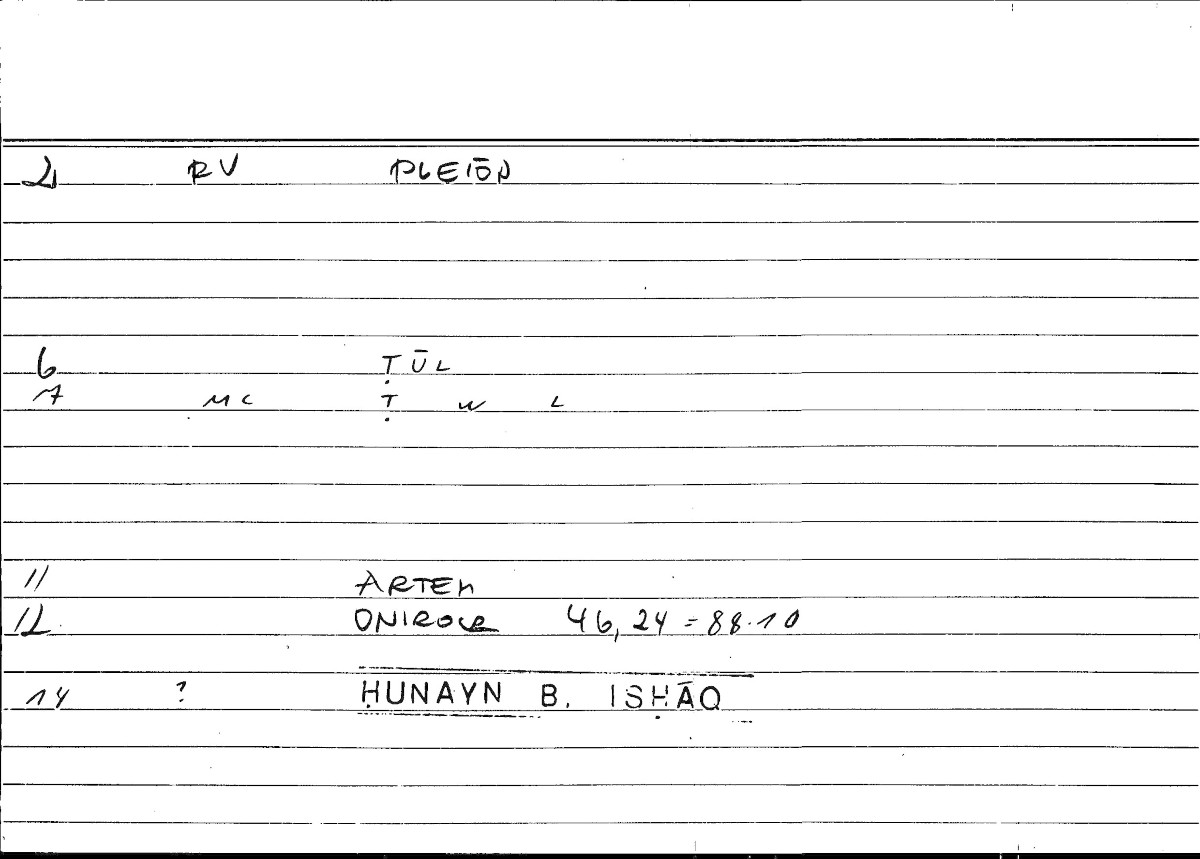 2 RV PLEIŌN
6 ṬŪL
7 MC Ṭ W L
11 ARTEM
12 ONIROCR 46,24 = 88.10
14 ? ḤUNAYN B. ISḤĀQ